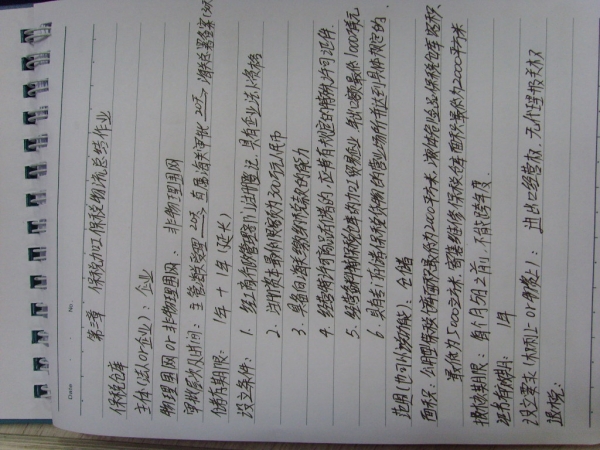 Date . No.
第三章 保税加工保税物流总结作业
保税仓库
主体(法人or企业):企业
物理围网or非物理围网:非物理围网
审批层次及时间:主管海关受理 20天 直属海关审批 20天 海关总署备案
储存期限:1年+1年(延长)
设立条件:1. 经工商行政管理部门注册登记,具有企业法人资格
2. 注册资本最低限额为300万元人民币
3. 具备向海关缴纳税款的能力
4. 经营特殊许可商品存储的,应持有规定的特殊许可证件.
5. 经营备料保税仓库的加工贸易企业 年出口额最低1000万美元
6. 具有专门存储保税货物的营业场所并达到海关规定的
范围(也可以为功能):仓储
面积:公用型保税仓库面积最低为2000平方米,液体危险品保税仓库容积
最低为5000立方米 寄售维修保税仓库面积最低为2000平方米
报核期限:每个月5日之前,不能跨年度.
注册有效期:1年
设立要求(材料上or实质上):进出口经营权,无代理报关权
退税: